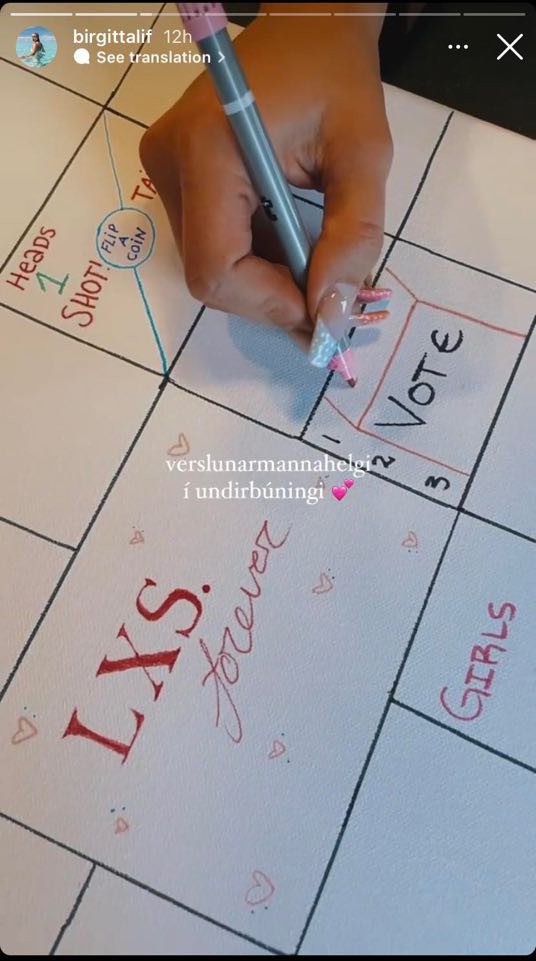 birgittalif 12h
See translation
Heads
1
SHOT!
FLIP
A
COIN
VOTE
1
2
3
verslunarmannahelgi
í undirbúningi 💕
LXS.
forever
GIRLS